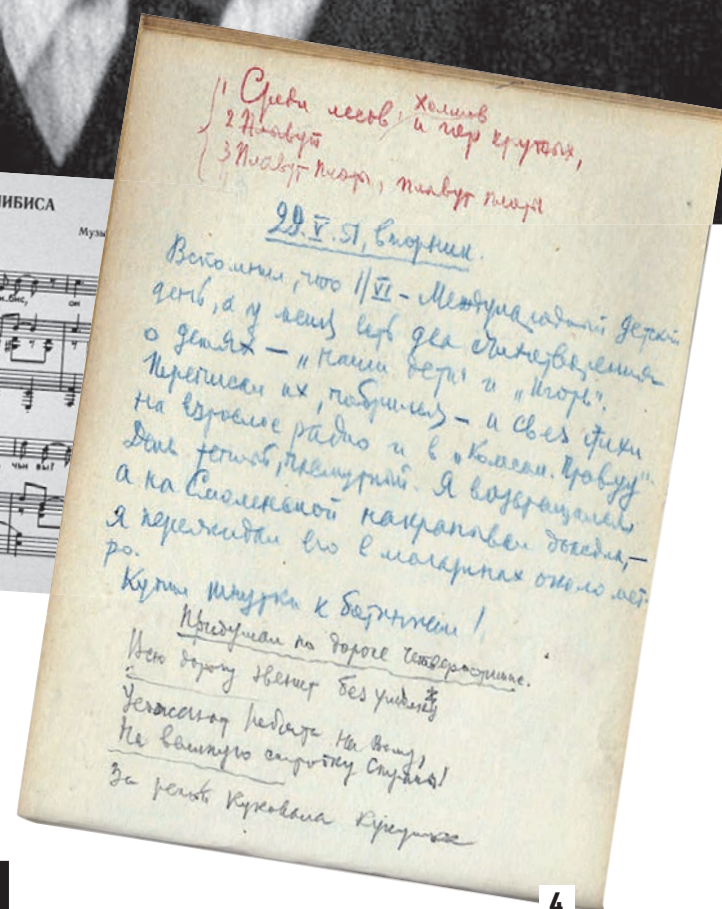 ЧИБИСА
Музы
бис, он
чьи вы?
холмов
1 Среди лесов, и гор крутых,
2 Плывут
3 Плывут плоты, плывут плоты
29.V.51, вторник.
Вспомнил, что 1/VI – Международный детский
день, а у меня есть два стихотворения
о детях – „Наши дети" и „Игорь".
Переписал их, побрился – и свёз стихи
на взрослое радио и в „Комсом. Правду".
День теплый, пасмурный. Я возвращался
а на Смоленской накрапывал дождь, –
я пережидал его в магазинах около мет-
ро.
Купил шнурки к ботинкам!
Придумал по дороге четверостишие.
Всю дорогу звенит без умолку
Уезжают ребята на
На большую стройку страны!
За рекой куковала кукушка
4